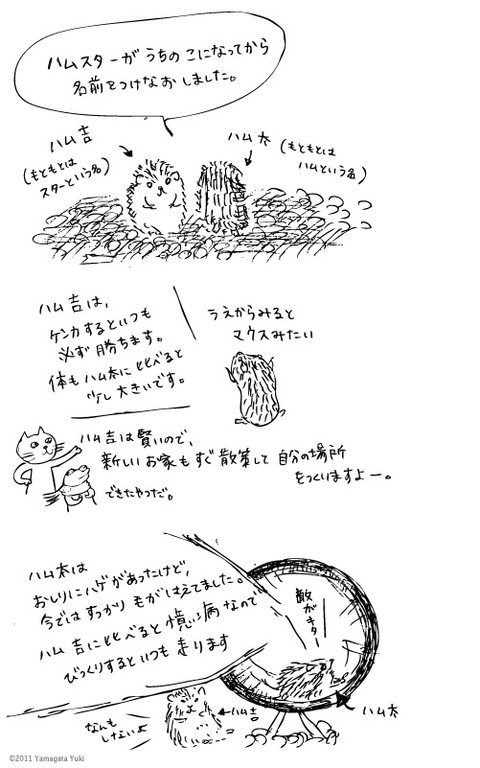 ハムスターが うちの こになってから
名前をつけなおしました。
ハム吉
(もともとは
スターという名)
ハム太
(もともとは
ハムという名)
ハム吉は、
ケンカするといつも
必ず勝ちます。
体もハム太に比べると
少し大きいです。
うえからみると
マウスみたい
ハム吉は賢いので、
新しいお家もすぐ散策して 自分の場所
をつくりますよー。
できたやつだ。
ハム太は
おしりにハゲがあったけど、
今ではすっかり毛がはえてました。
ハム吉に比べると憶病なので
びっくりするといつも走ります
敵がキター
なんも
しないよ
ハム吉
ハム太
©2011 Yamagata Yuki